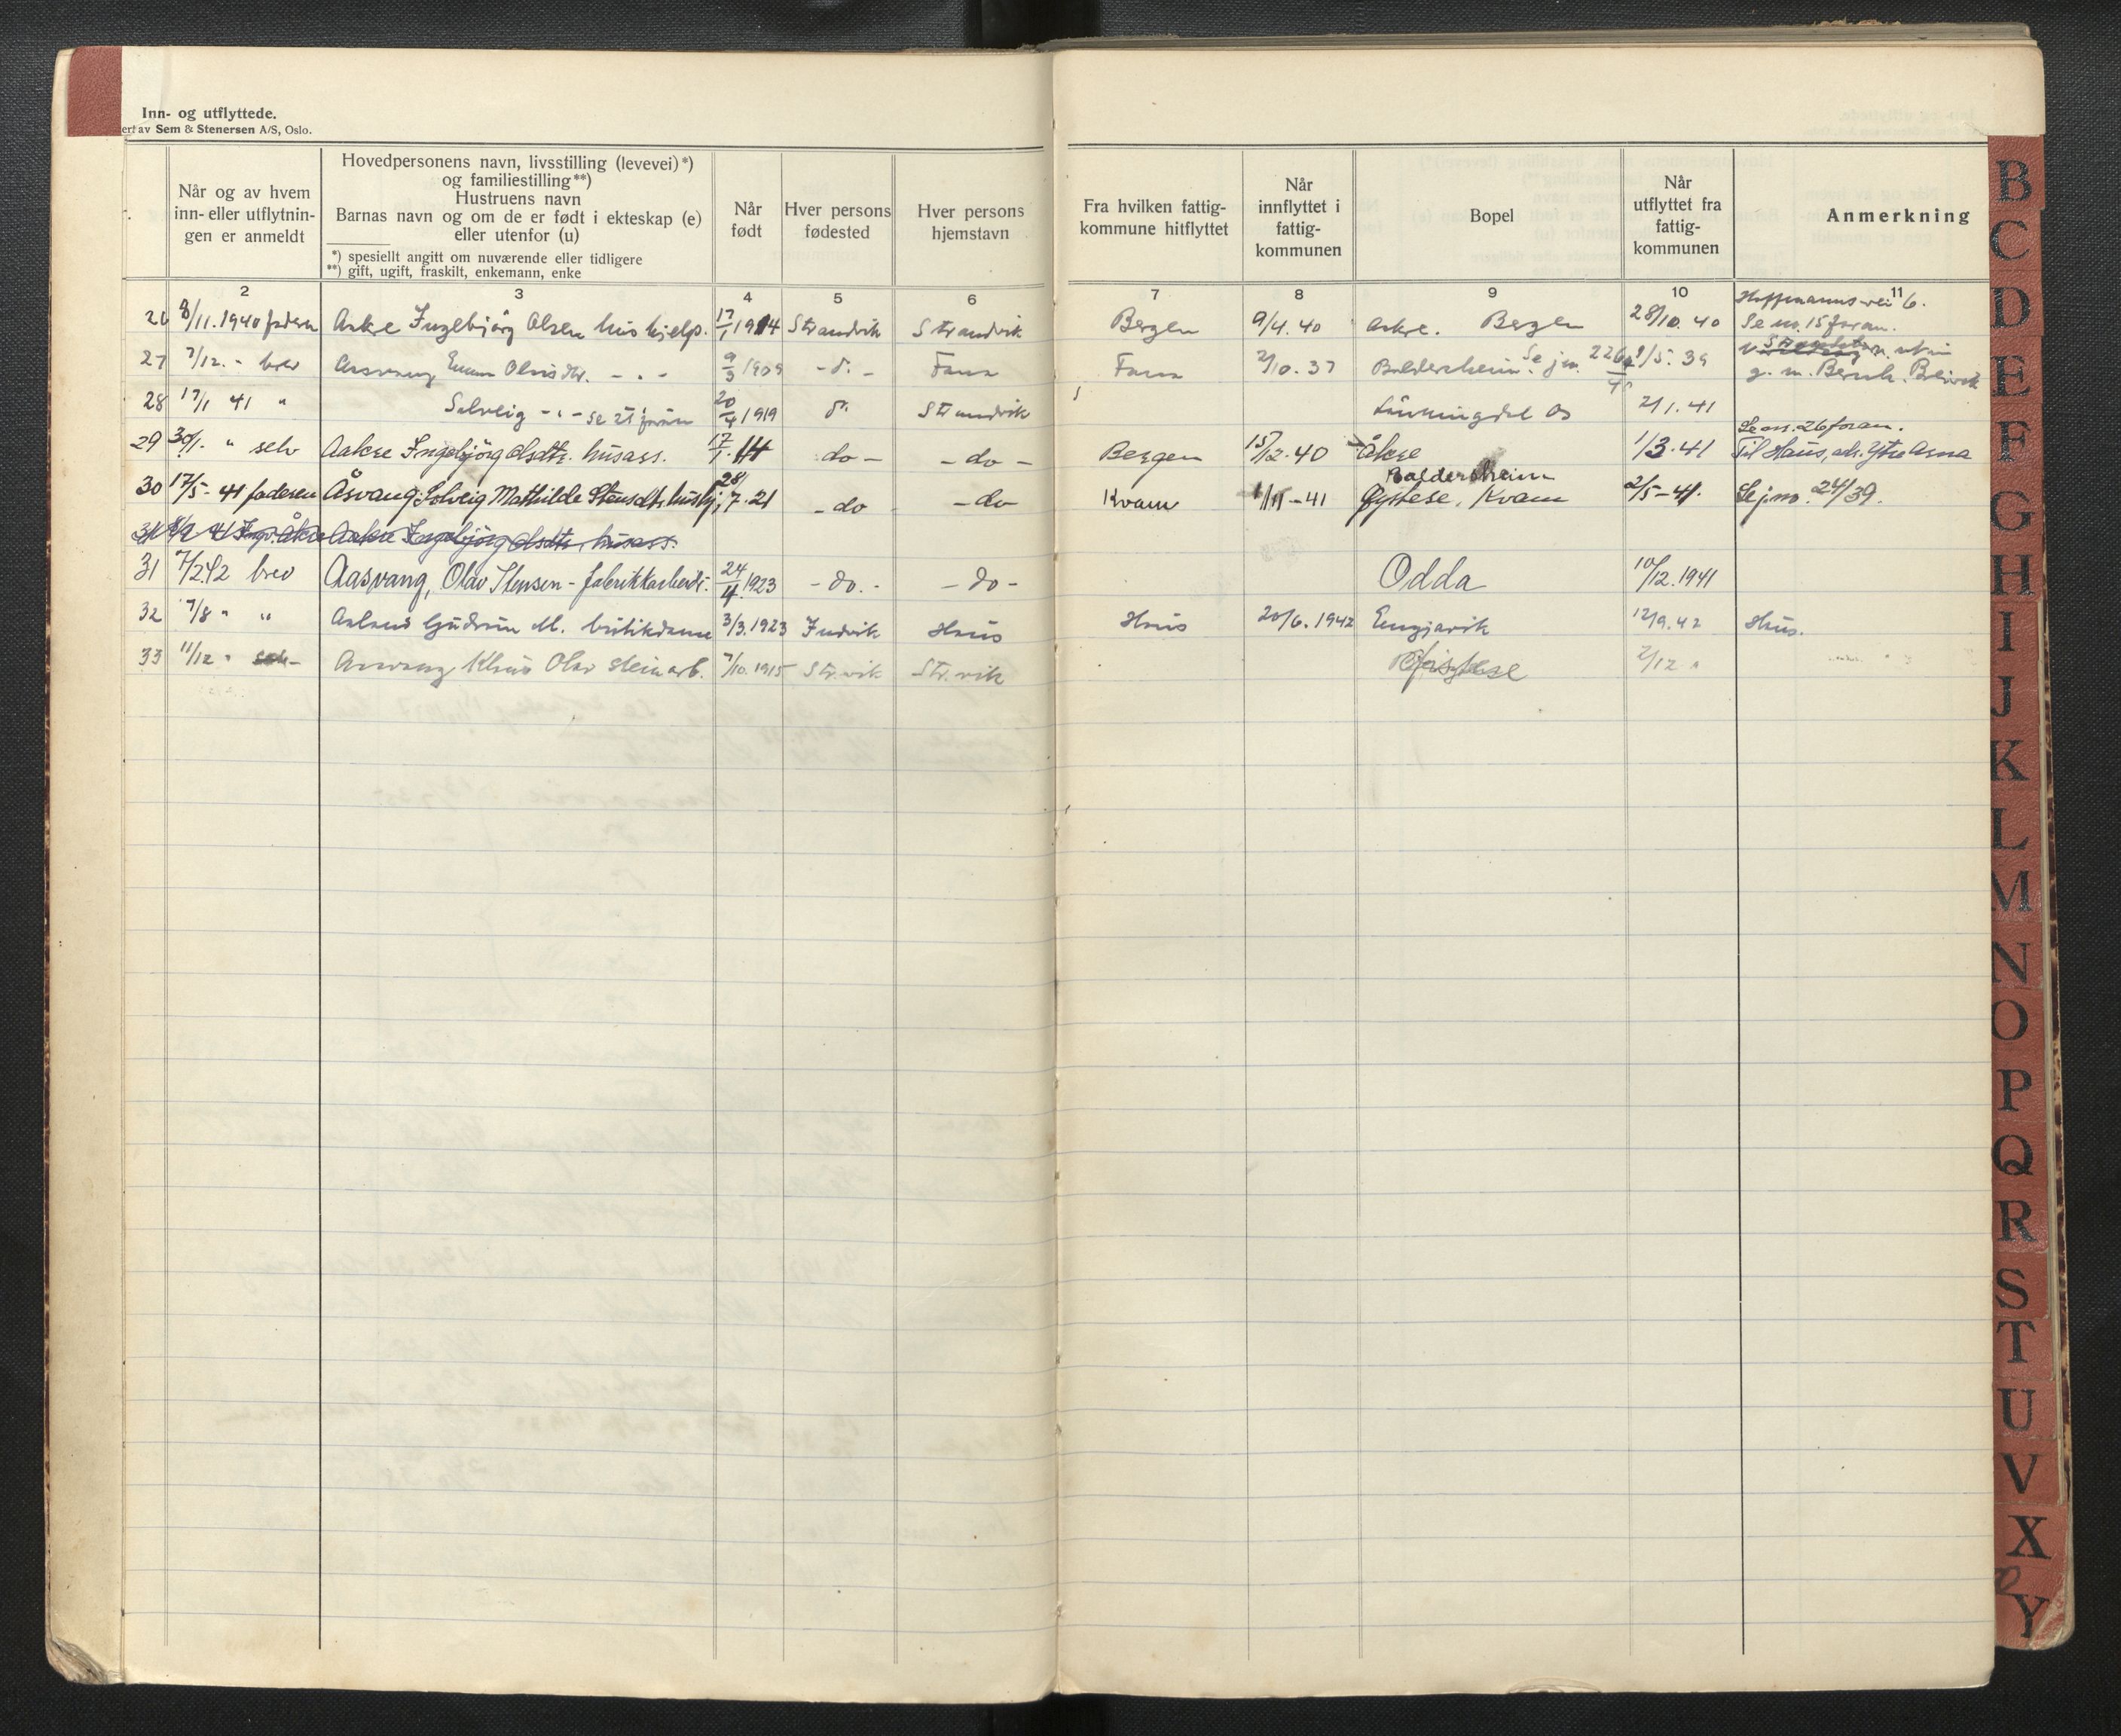 Inn- og utflyttede.
ert av Sem & Stenersen A/S, Oslo.
Når og av hvem inn- eller utflytnin- gen er anmeldt
Hovedpersonens navn, livsstilling (levevei)*)
og familiestilling**)
Hustruens navn
Barnas navn og om de er født i ekteskap (e)
eller utenfor (u)
*) spesiellt angitt om nuværende eller tidligere
**) gift, ugift, fraskilt, enkemann, enke
Når født
Hver persons fødested
Hver persons hjemstavn
Fra hvilken fattig- kommune hitflyttet
Når innflyttet i fattig- kommunen
Bopel
Når utflyttet fra fattig- kommunen
Anmerkning
2 3 4 5 6 7 8 9 10 11
26 8/11. 1940 faderen Aakre Ingebjörg Olsen hushjelp. 17/1 1914 Strandvik Strandvik Bergen 9/4. 40 Aakre. Bergen 28/10. 40 Hoffmannsvei 6. Se no. 15 foran.
27 7/12. - brev Aasvang Emma Olsdtr. - " - 9/3 1909 - d. - Fana Fana 2/10. 37 Baldersheim. Se jn. 226 /5. 39 g. m. Bernh.
28 17/1 41 " Solveig - " - se 21 foran 20/4 1919 d. Strandvik Os 2/1. 41
29 30/1. " selv Aakre Ingebjörg Olsdtr. husass. 17/1 14 - do - - do - Bergen 15/12. 40 Åkre 1/3. 41 Se no. 26 foran. Til Haus, adr. Ytre Arna
30 17/5 - 41 faderen Åsvang, Solveig Mathilde Stensdtr. hushj. 28/7. 21 - do - do - Kvam 1/11 - 41 Baldersheim Øystese, Kvam 2/5 - 41. Se jno. 24/39.
31 Aakre Ingebjörg Olsdtr. husass.
31 7/2 42 brev Aasvang, Olav Stensen - fabrikkarbeid. 24/4 1923 - do. - - do - Odda 10/12. 1941
32 7/8 " " Gudrun M. butikdame 3/3. 1923 Haus Haus 20/6. 1942 Engjavik 12/9. 42 Haus.
33 11/12 " Aasvang Olav steinarb. 7/10. 1915 Str.vik Str.vik 2/12 "
B
C
D
E
F
G
H
I
J
K
L
M
N
O
P
Q
R
S
T
U
V
X
Y